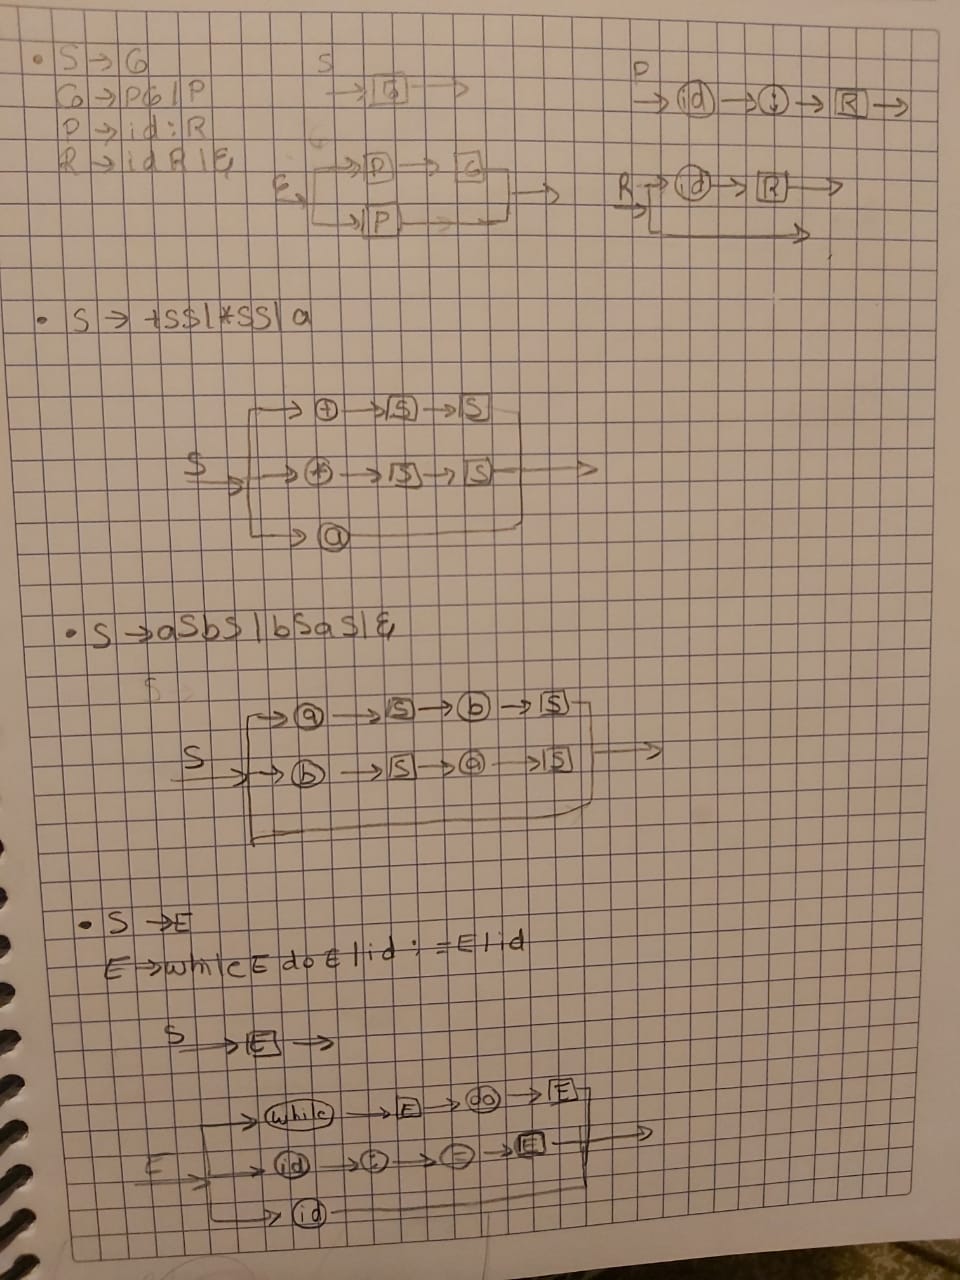 • S → G
G → PG | P
P → id : R
R → id R | ε
S
→ G →
P
→ id → : → R →
G → P → G →
→ P →
R → id → R →
• S → +SS | *SS | a
→ + → S → S
S → * → S → S →
→ a
• S → aSbS | bSaS | ε
→ a → S → b → S
S → b → S → a → S →
• S → E
E → while E do E | id : = E | id
S → E →
→ while → E → do → E
E → id → : → = → E →
→ id